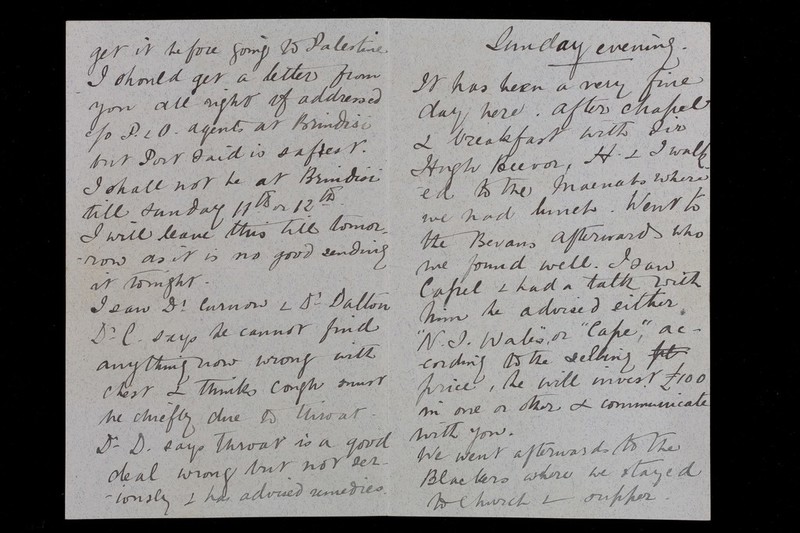 get it before going to Palestine.
I should get a letter from
you all right if addressed
c/o P. & O. agents at Brindisi
but Port Said is safest.
I shall not be at Brindisi
till Sunday 11th or 12th.
I will leave this till tomor-
-row as it is no good sending
it tonight.
I saw Dr. Curnow & Dr. Dalton
Dr C. says he cannot find
anything now wrong with
chest & thinks cough must
be chiefly due to throat.
Dr D. says throat is a good
deal wrong but not ser-
-iously & has advised remedies.
Sunday evening.
It has been a very fine
day here. After chapel
& breakfast with Sir
Hugh Beevor, H. & I walk
ed to the where
we had lunch. Went to
the Bevans afterwards who
we found well. I saw
Capel & had a talk with
him he advised either
"N.S. Wales, or "Cape", ac-
-cording to the selling
price, he will invest £100
in one or other & communicate
with you.
We went afterwards to the
Blackers where we stayed
to Church & supper.